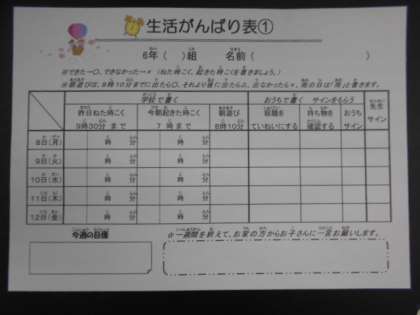 生活がんばり表①
6年（　）組　名前（　　　）
※できた…○、できなかった…×（ねた時こく、起きた時こくを書きましょう。）
※朝遊びは、8時10分までに出たら○、それより後に出たら△、出なかったら×、雨の日は「雨」と書きます。
学校で書く　おうちで書く　サインをもらう　先生サイン
昨日ねた時こく　今朝起きた時こく　朝遊び　宿題を　持ち物を　おうち
9時30分まで　7時まで　8時10分　ていねいにする　確認する　サイン
8日(月)　時　分　時　分
9日(火)　時　分　時　分
10日(水)　時　分　時　分
11日(木)　時　分　時　分
12日(金)　時　分　時　分
今週の目標　☆一週間を終えて、お家の方からお子さんに一言お願いします。